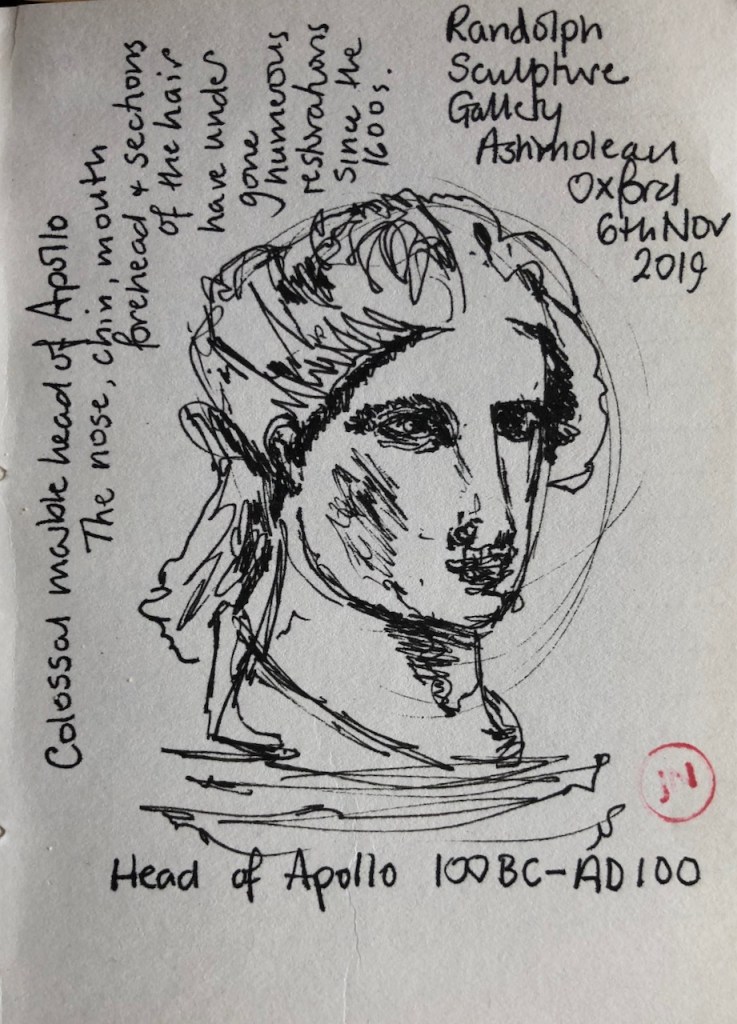 Randolph
Sculpture
Gallery
Ashmolean
Oxford
6th Nov
2019
Colossal marble head of Apollo
The nose, chin, mouth
forehead & sections
of the hair
have under
gone
numerous
restorations
since the
1600s.
JN
Head of Apollo 100BC-AD100